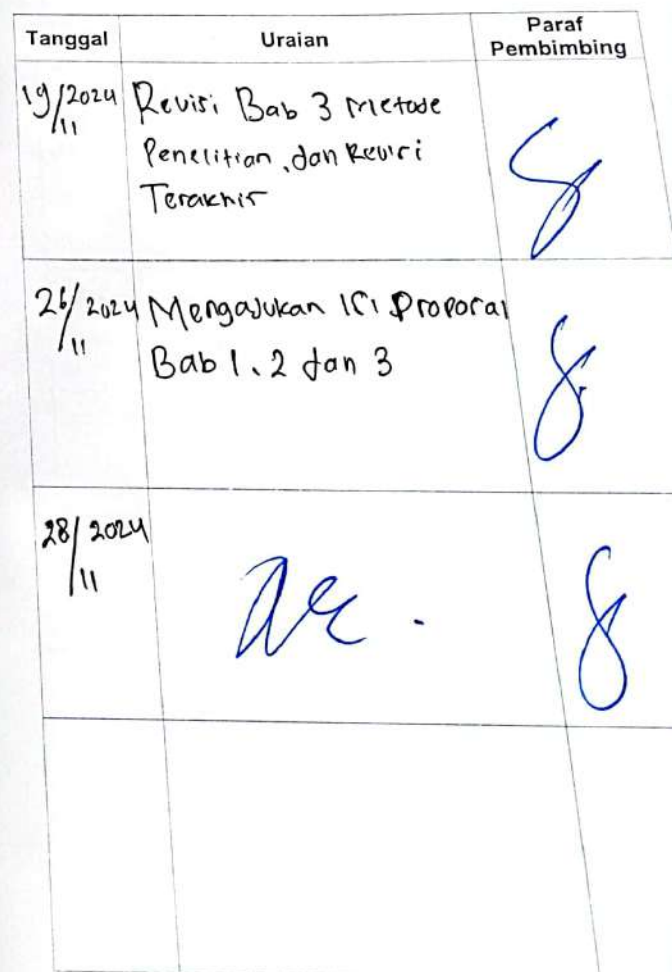 Tanggal Uraian Paraf Pembimbing
19/11 2024 Revisi Bab 3 Metode
Penelitian, dan Revisi
Terakhir
26/11 2024 Mengajukan Isi Proposal
Bab 1, 2 dan 3
28/11 2024